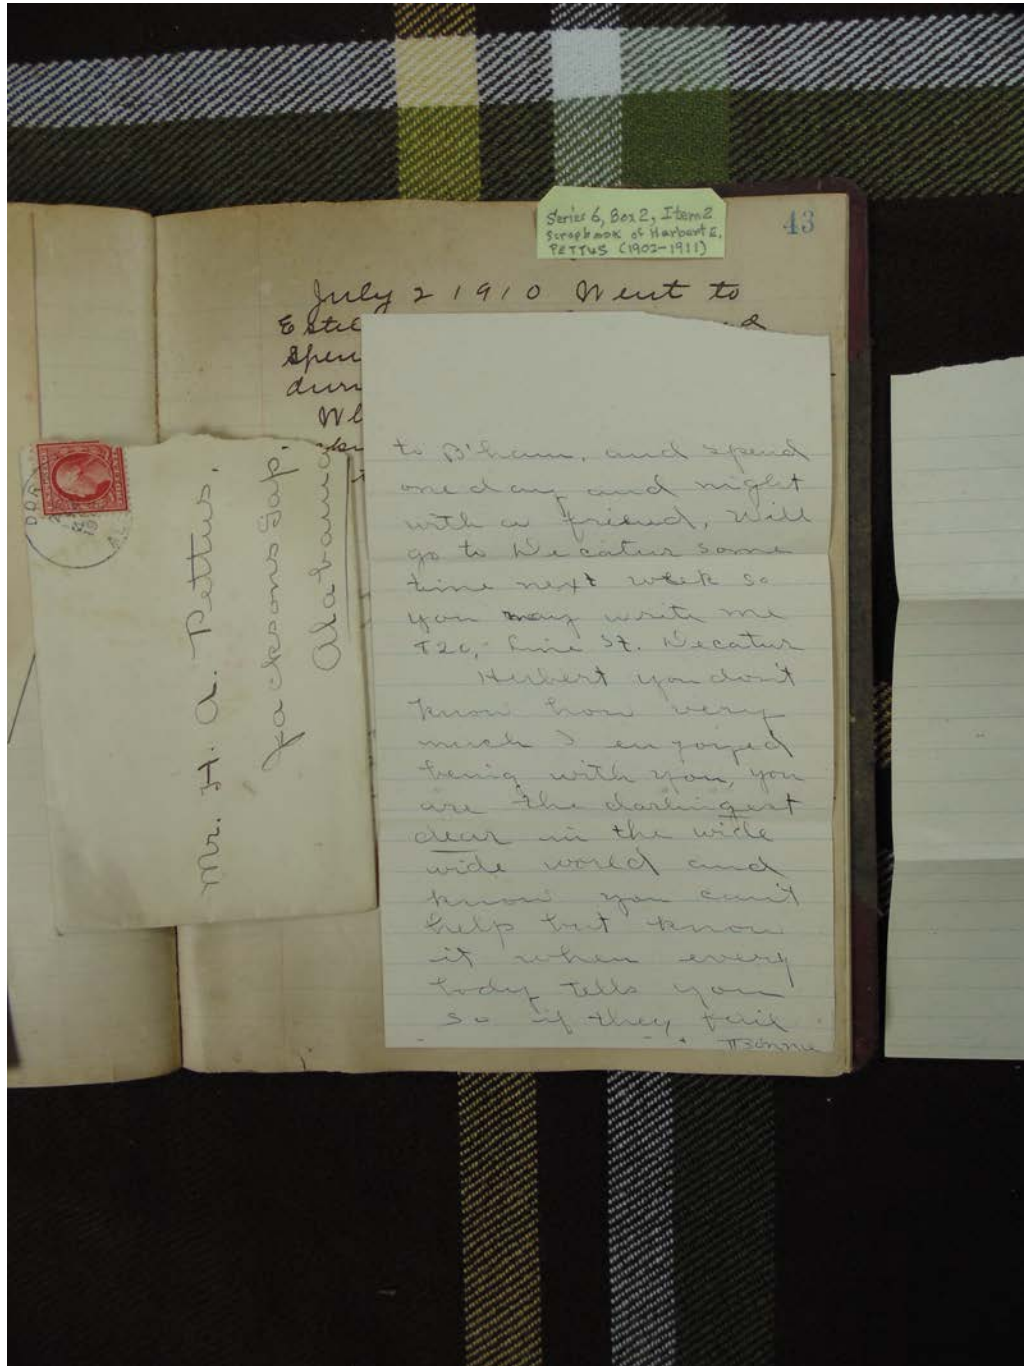 Series 6, Box 2, Item 2
Scrapbook of Harbert E.
PETTUS (1902-1911)
43
July 2 1910 Went to
Estil
Spen
durin
Mr. H. A. Pettus,
Jacksons Gap.
Alabama
to B'ham, and spend
one day and night
with a friend, Will
go to Decatur some
time next week so
you may write me
Line St. Decatur
Herbert you don't
know how very
much I enjoyed
being with you, you
are the darlingest
dear in the wide
wide world and
know you can't
help but know
it when every
body tells you
so if they
Bonnie